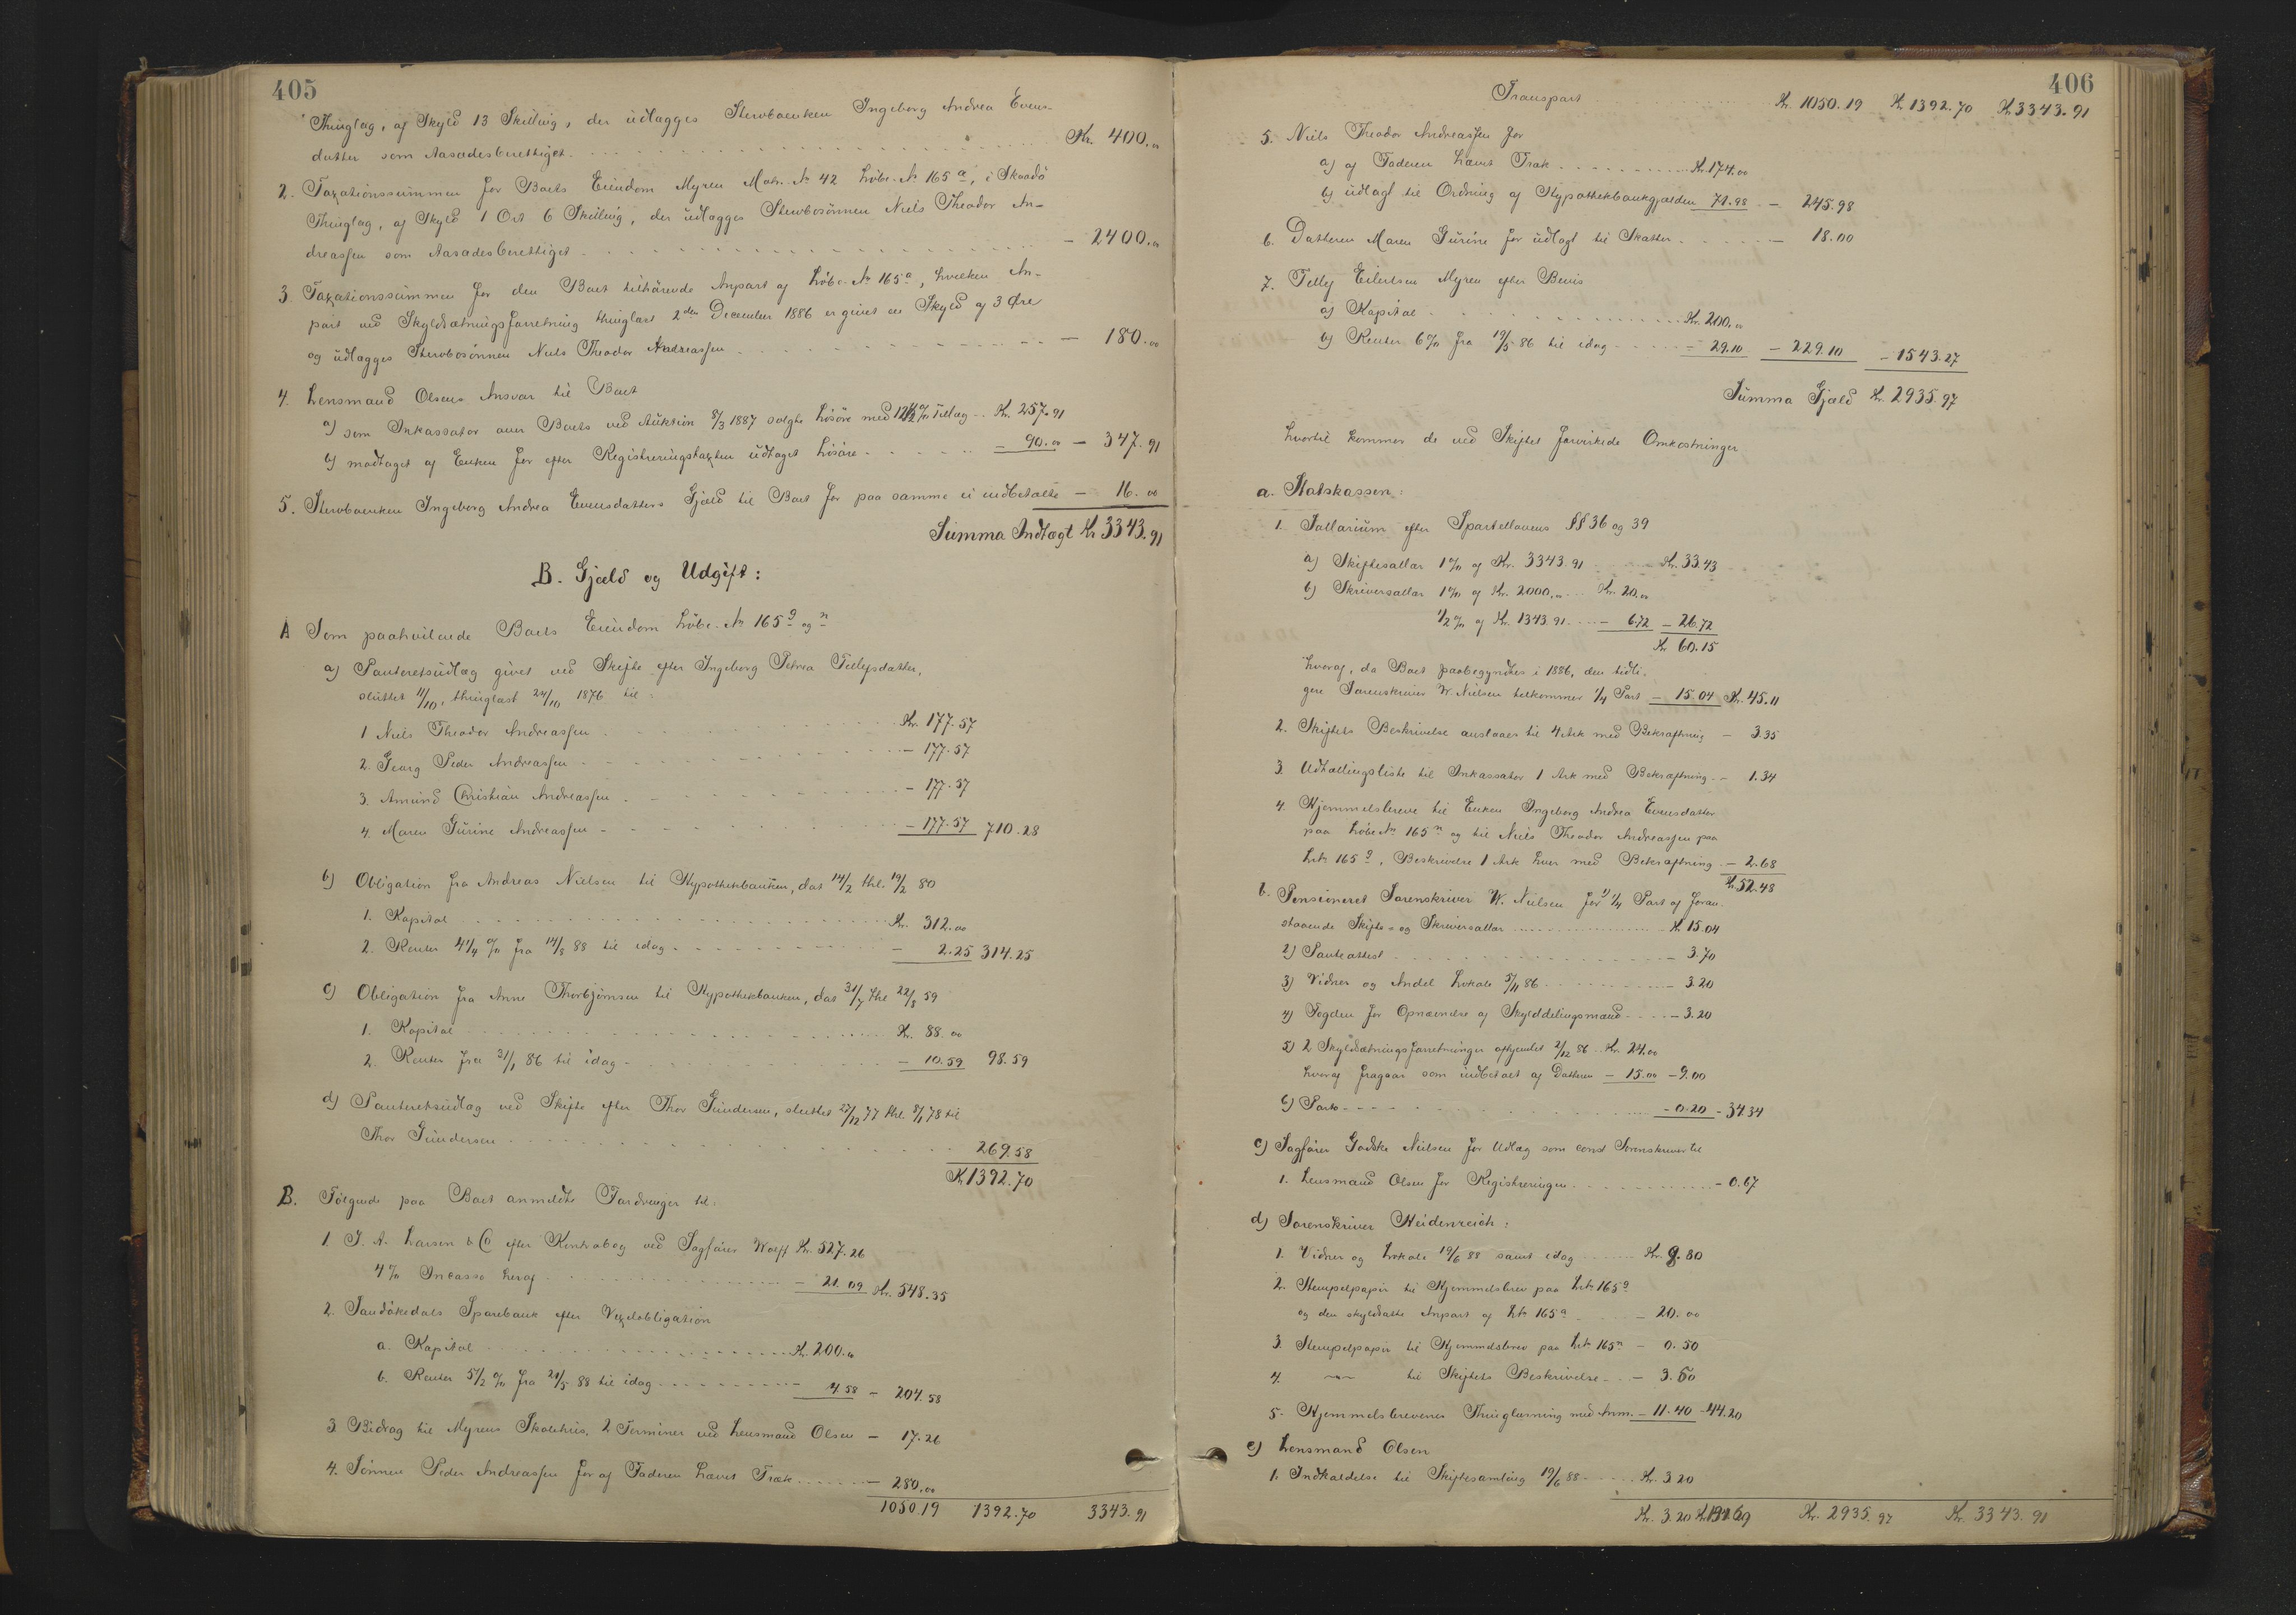 405
Thinglag, af Skyld 13 Skilling, der udlægges Stervboenken Ingeborg Andrea Evens-
datter som Aasædesberettiget Kr. 400.00
2. Taxationssummen for Boets Eiendom Myren Matr. No 42 Løbe-No 165 a, i Skaadø
Thinglag, af Skyld 1 Ort 6 Skilling, der udlægges Stervbosønnen Niels Theodor An-
dreassen som Aasædesberettiget - 2400.00
3. Taxationssummen for den Boet tilhørende Anpart af Løbe-No 165 a, hvilken An-
part ved Skyldsætningsforretning thinglæst 2den December 1886 er givet en Skyld af 3 Øre
og udlægges Stervbosønnen Niels Theodor Andreassen - 180.00
4. Lensmand Olsens Ansvar til Boet
a) som Inkassator over Boets ved Auktion 8/3 1887 solgte Løsøre med 12 1/2 % Tillæg Kr. 257.91
b) modtaget af Enken for efter Registreringstaxten udtaget Løsøre - 90.00 - 347.91
5. Stervboenken Ingeborg Andrea Evensdatters Gjæld til Boet for paa samme ei indbetalte - 16.00
Summa Indtægt Kr 3343.91
B. Gjæld og Udgift:
A Som paahvilende Boets Eiendom Løbe-No 165 g og n
a) Panteretsudlæg givet ved Skifte efter Ingeborg Petrea Tellefsdatter,
sluttet 11/10, thinglæst 24/10 1876 til:
1 Niels Theodor Andreassen Kr. 177.57
2. Georg Peder Andreassen - 177.57
3. Amund Christian Andreassen - 177.57
4. Maren Gurine Andreassen - 177.57 710.28
b) Obligation fra Andreas Nielsen til Hypothekbanken, dat 14/2 thl. 19/2 80
1. Kapital Kr. 312.00
2. Renter 4 1/4 % fra 14/8 88 til idag - 2.25 314.25
c) Obligation fra Anne Thorbjørnsen til Hypothekbanken, dat 31/7 thl 22/8 59
1. Kapital Kr. 88.00
2. Renter fra 31/1 86 til idag - 10.59 98.59
d) Panteretsudlæg ved Skifte efter Thor Gundersen, sluttet 27/12 77 thl. 8/1 78 til
Thor Gundersen 269.58
Kr 1392.70
B. Følgende paa Boet anmeldte Fordringer til:
1. J. A. Larsen & Co efter Kontrabog ved Sagfører Worff Kr. 527.26
4 % Incasso heraf - 21.09 Kr. 548.35
2. Sandøkedals Sparebank efter Vexelobligation
a. Kapital Kr. 200.00
b. Renter 5 1/2 % fra 21/5 88 til idag - 4.58 - 204.58
3. Bidrag til Myrens Skolehus, 2 Terminer ved Lensmand Olsen - 17.26
4. Sønnen Peder Andreassen for af Faderen hævet Træk - 280.00
1050.19 1392.70 3343.91
406
Transport Kr. 1050.19 Kr. 1392.70 Kr. 3343.91
5. Niels Theodor Andreassen for
a) af Faderen hævet Træk Kr. 174.00
b) udlagt til Ordning af Hypothekbankgjælden 71.98 - 245.98
6. Datteren Maren Gurine for udlagt til Skatter - 18.00
7. Tellef Eilertsen Myren efter Bevis
a) Kapital Kr. 200.00
b) Renter 6 % fra 19/5 86 til idag - 29.10 - 229.10 - 1543.27
Summa Gjæld Kr. 2935.97
hvortil kommer de ved Skiftet forvirkede Omkostninger
a. Statskassen:
1. Sallarium efter Sportellovens §§ 36 og 39
a) Skiftesallar 1 % af Kr. 3343.91 Kr. 33.43
b) Skriversallar 1 % af Kr. 2000.00 Kr. 20.00
1/2 % af Kr. 1343.91 - 6.72 - 26.72
Kr 60.15
hvoraf, da Boet paabegyndtes i 1886, den tidli-
gere Sorenskriver W. Nielsen tilkommer 1/4 Part - 15.04 Kr. 45.11
2. Skiftets Beskrivelse anslaaes til 4 Ark med Bekræftning - 3.35
3. Udtællingsliste til Inkassator 1 Ark med Bekræftning - 1.34
4. Hjemmelsbreve til Enken Ingeborg Andrea Evensdatter
paa Løbe No 165 n og til Niels Theodor Andreassen paa
Lno 165 g, Beskrivelse 1 Ark hver med Bekræftning - 2.68
Kr. 52.48
b. Pensioneret Sorenskriver W. Nielsen for 1) 1/4 Part af foran-
staaende Skifte- og Skriversallar Kr. 15.04
2) Panteattest - 3.70
3) Vidner og Andel Lokale 5/11 86 - 3.20
4) Fogden for Opnævnelse af Skylddelingsmænd - 3.20
5) 2 Skyldsætningsforretninger afhjemlet 2/12 86 Kr. 24.00
hvoraf fragaar som indbetalt af Datteren - 15.00 - 9.00
6) Porto - 0.20 - 34.34
c) Sagfører Godske Nielsen for Udlæg som const Sorenskriver til
1. Lensmand Olsen for Registreringen - 0.67
d) Sorenskriver Heidenreich:
1. Vidner og Lokale 19/6 88 samt idag Kr. 8.80
2. Stempelpapir til Hjemmelsbrev paa Lno 165 g
og den skyldsatte Anpart af Lno 165 a - 20.00
3. Stempelpapir til Hjemmelsbrev paa Lno 165 n - 0.50
4. —"— til Skiftets Beskrivelse - 3.50
5. Hjemmelsbrevenes Thinglæsning med Anm. - 11.40 - 44.20
e) Lensmand Olsen
1. Indkaldelse til Skiftesamling 19/6 88 Kr. 3.20
Kr. 3.20 Kr. 131.69 Kr. 2935.97 Kr. 3343.91